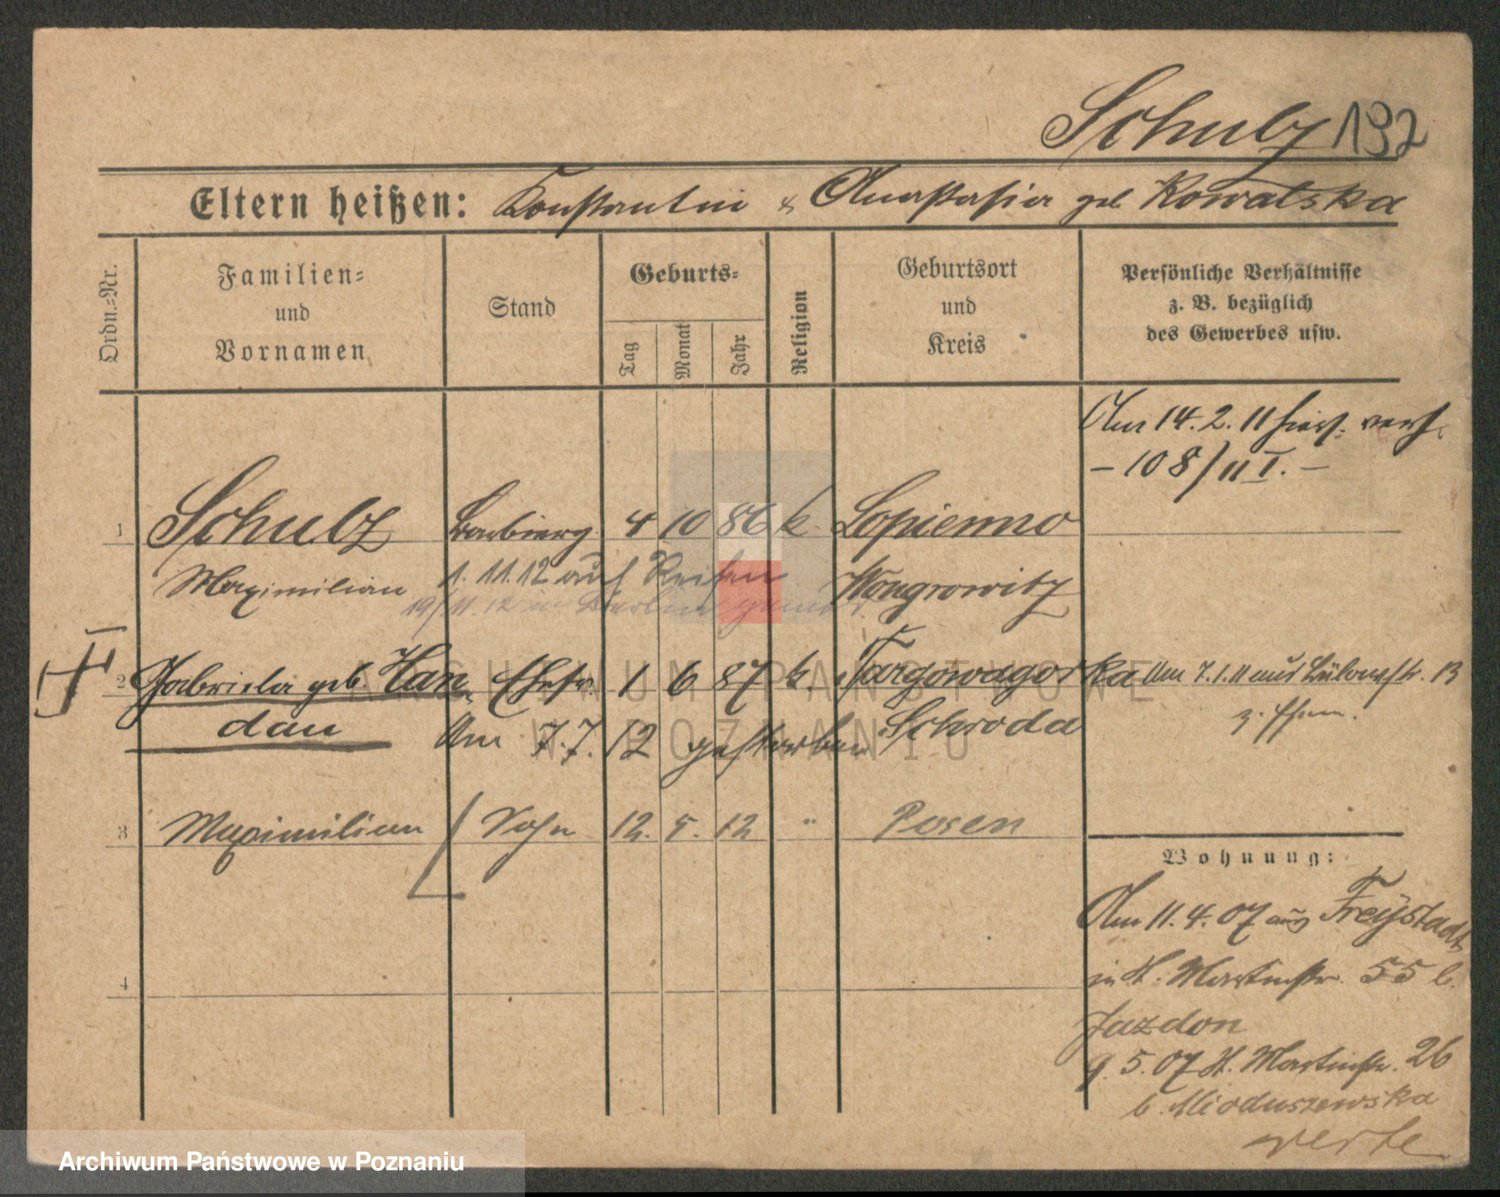 Schulz 192
Eltern heißen: Konstantin & Anastasia geb. Kowalska
Ordn.-Nr.
Familien-
und
Vornamen
Stand
Geburts-
Tag
Monat
Jahr
Religion
Geburtsort
und
Kreis
Persönliche Verhältnisse
z. B. bezüglich
des Gewerbes usw.
Am 14. 2. 11 hier verh.
– 108/11 I. –
1 Schulz Barbierg. 4 10 86 k. Lopienno
Maximilian 1. 11. 12 auf Reisen Wongrowitz
19/11.12 in Berlin gem.
2 Gabriela geb. Han Ehefr. 1 6 87 k. Targowagorka Am 7. 1. 11 aus Bülowstr. 13
dau Am 7. 7. 12 gestorben Schroda
3 Maximilian Sohn 12. 5. 12 " Posen
4
Wohnung:
Am 11. 4. 07 aus Freystadt
in St. Martinstr. 55 b.
Jazdon
9. 5. 07 St. Martinstr. 26
b. Mioduszewska
verte
ARCHIWUM PAŃSTWOWE
W POZNANIU
Archiwum Państwowe w Poznaniu